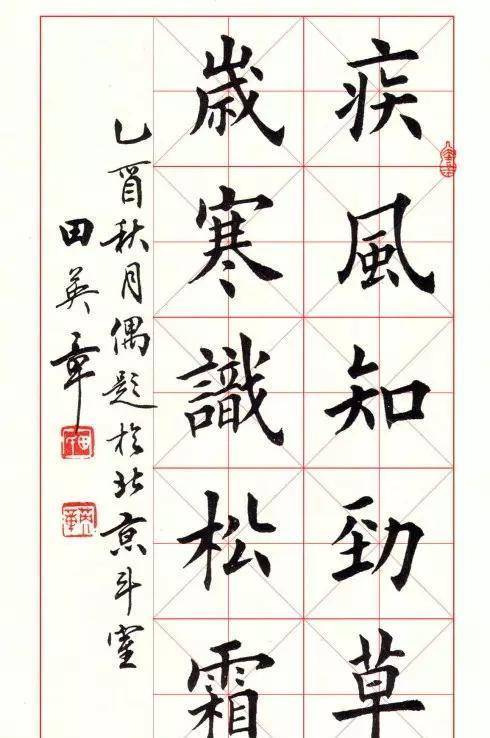 疾風知勁草
歲寒識松霜
乙酉秋月偶题於北京斗室
田英章